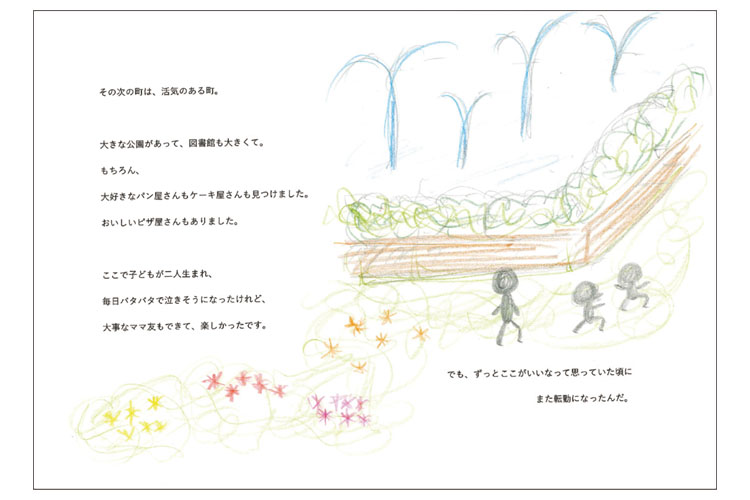 その次の町は、活気のある町。
大きな公園があって、図書館も大きくて。
もちろん、
大好きなパン屋さんもケーキ屋さんも見つけました。
おいしいピザ屋さんもありました。
ここで子どもが二人生まれ、
毎日バタバタで泣きそうになったけれど、
大事なママ友もできて、楽しかったです。
でも、ずっとここがいいなって思っていた頃に
また転勤になったんだ。